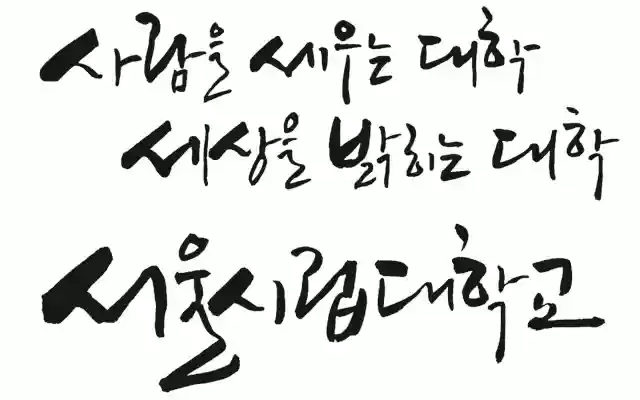 사람을 세우는 대학
세상을 밝히는 대학
서울시립대학교